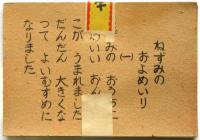 ねずみの
およめいり
(一)
みの おうちに
いい おん
こが うまれました
だんだん 大きくな
つて よいむすめに
なりました